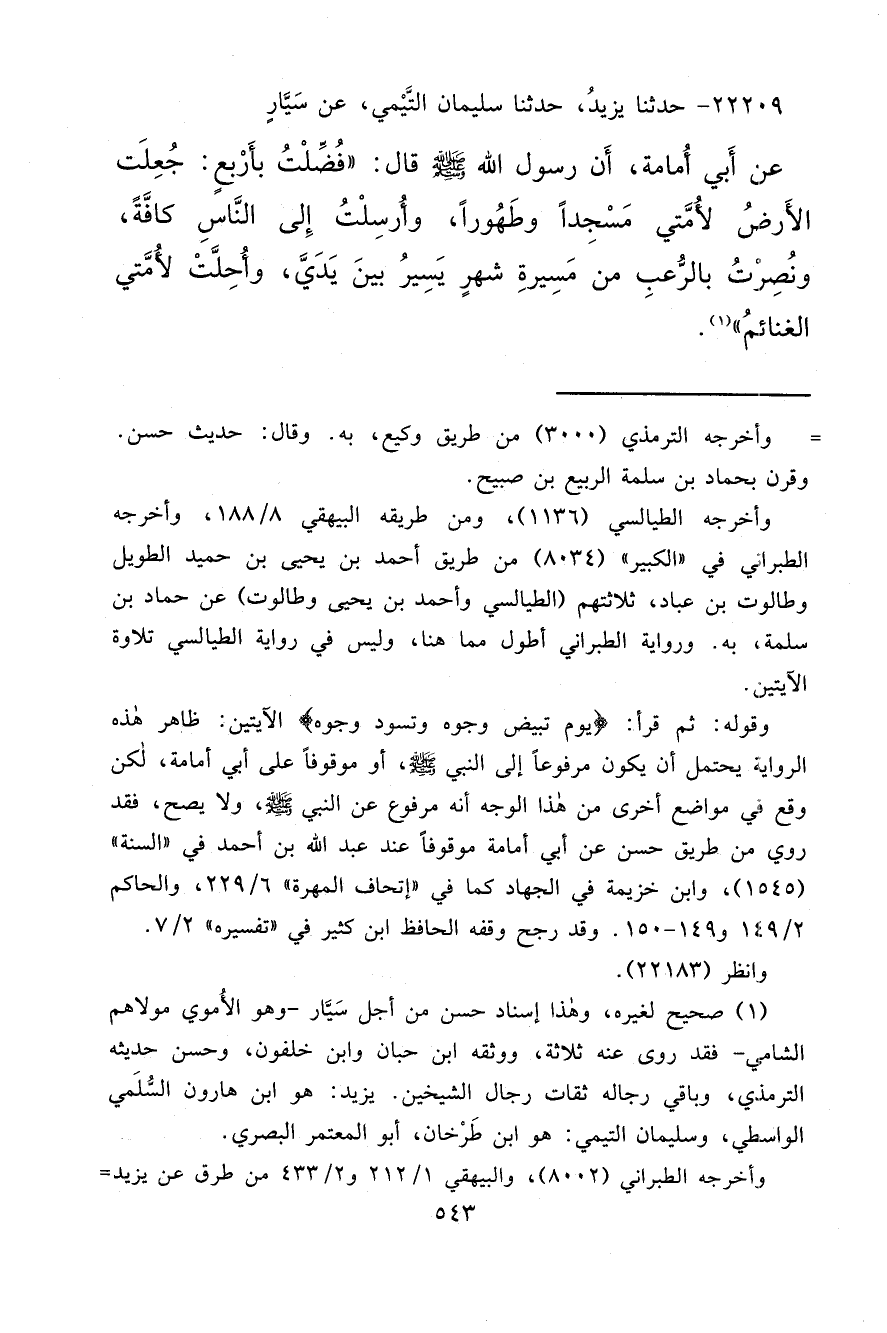 ٢٢٢٠٩- حدثنا يزيدُ، حدثنا سليمان التَّيْمي، عن سَيَّارٍ
عن أَبي أُمامة، أَن رسول الله ﷺ قال: «فُضِّلْتُ بأَرْبعٍ: جُعِلَت
الأَرضُ لأُمَّتي مَسْجِداً وطَهُوراً، وأُرسِلْتُ إِلى النَّاسِ كافَّةً،
ونُصِرْتُ بالرُّعبِ من مَسِيرةِ شهرٍ يَسِيرُ بينَ يَدَيَّ، وأُحِلَّتْ لأُمَّتي
الغنائمُ»(١).
= وأخرجه الترمذي (٣٠٠٠) من طريق وكيع، به. وقال: حديث حسن.
وقرن بحماد بن سلمة الربيع بن صبيح.
وأخرجه الطيالسي (١١٣٦)، ومن طريقه البيهقي ١٨٨/٨، وأخرجه
الطبراني في «الكبير» (٨٠٣٤) من طريق أحمد بن يحيى بن حميد الطويل
وطالوت بن عباد، ثلاثتهم (الطيالسي وأحمد بن يحيى وطالوت) عن حماد بن
سلمة، به. ورواية الطبراني أطول مما هنا، وليس في رواية الطيالسي تلاوة
الآيتين.
وقوله: ثم قرأ: ﴿يوم تبيض وجوه وتسود وجوه﴾ الآيتين: ظاهر هٰذه
الرواية يحتمل أن يكون مرفوعاً إلى النبي ﷺ، أو موقوفاً على أبي أمامة، لٰكن
وقع في مواضع أخرى من هٰذا الوجه أنه مرفوع عن النبي ﷺ، ولا يصح، فقد
روي من طريق حسن عن أبي أمامة موقوفاً عند عبد الله بن أحمد في «السنة»
(١٥٤٥)، وابن خزيمة في الجهاد كما في «إتحاف المهرة» ٢٢٩/٦، والحاكم
١٤٩/٢ و١٤٩-١٥٠. وقد رجح وقفه الحافظ ابن كثير في «تفسيره» ٧/٢.
وانظر (٢٢١٨٣).
(١) صحيح لغيره، وهٰذا إسناد حسن من أجل سَيَّار -وهو الأُموي مولاهم
الشامي- فقد روى عنه ثلاثة، ووثقه ابن حبان وابن خلفون، وحسن حديثه
الترمذي، وباقي رجاله ثقات رجال الشيخين. يزيد: هو ابن هارون السُّلَمي
الواسطي، وسليمان التيمي: هو ابن طَرْخان، أبو المعتمر البصري.
وأخرجه الطبراني (٨٠٠٢)، والبيهقي ٢١٢/١ و٤٣٣/٢ من طرق عن يزيد=
٥٤٣